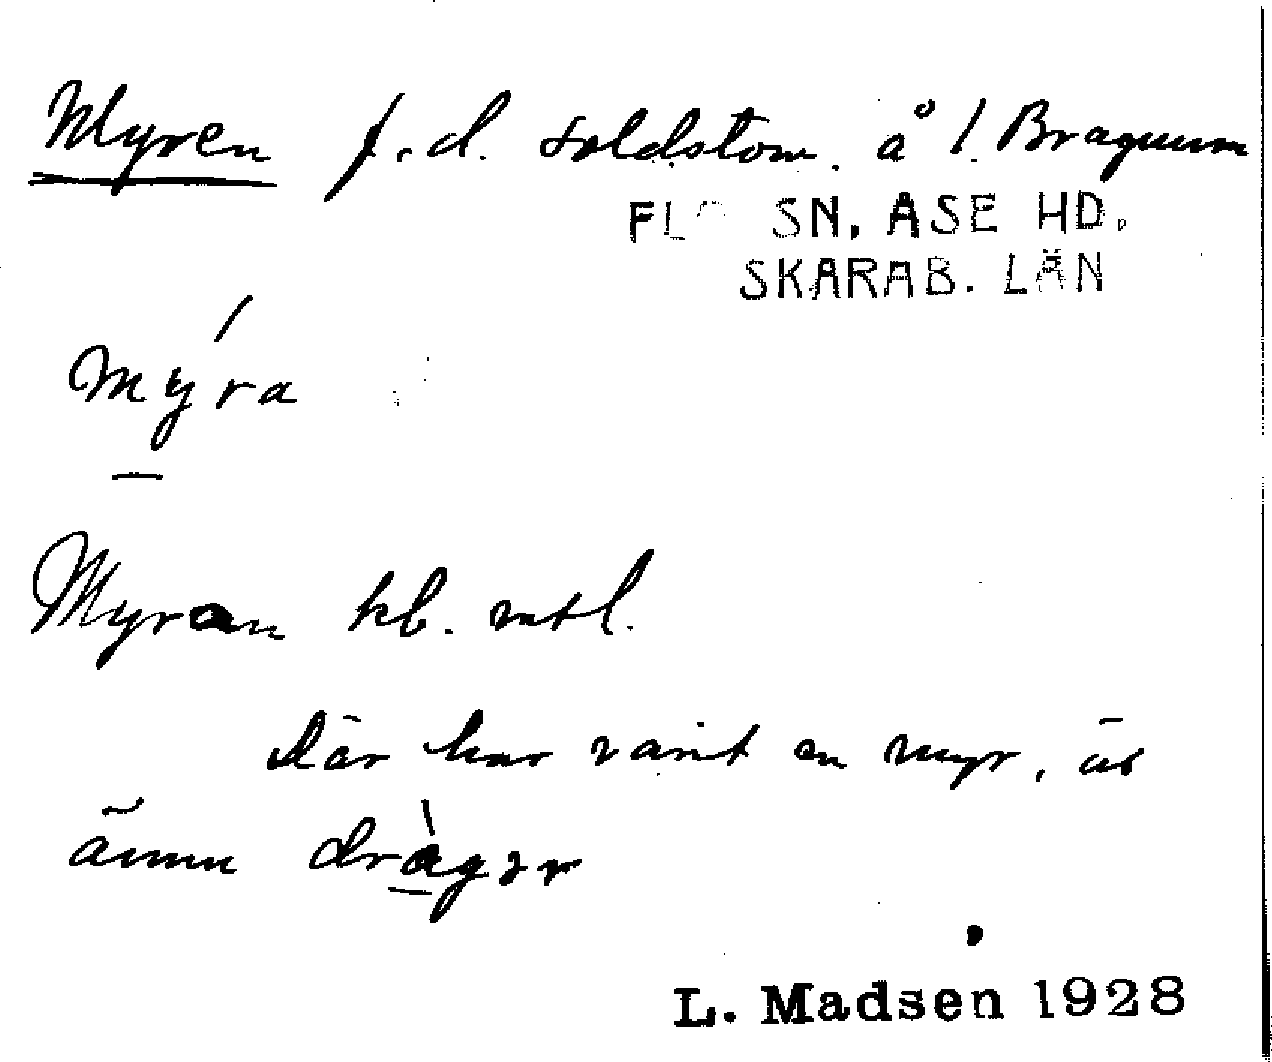 Myren f.d. soldstom. å l. Braquum
FLO SN. ASE HD.
SKARAB. LÄN
mýra
Myran kb. mtl.
Där har varit en myr, är
ännu dràgər
L. Madsen 1928